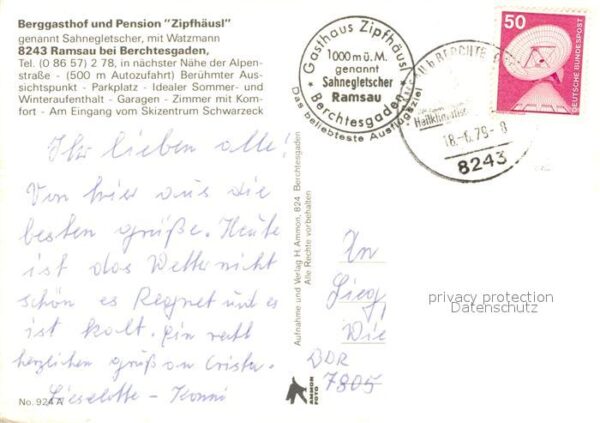 Berggasthof und Pension "Zipfhäusl"
genannt Sahnegletscher, mit Watzmann
8243 Ramsau bei Berchtesgaden,
Tel. (0 86 57) 2 78, in nächster Nähe der Alpen-
straße - (500 m Autozufahrt) Berühmter Aus-
sichtspunkt - Parkplatz - Idealer Sommer- und
Winteraufenthalt - Garagen - Zimmer mit Kom-
fort - Am Eingang vom Skizentrum Schwarzeck
Ihr lieben alle!
Von hier aus die
besten grüße. Heute
ist das Wetter nicht
schön es Regnet und es
ist kalt. Ein recht
herzlichen gruß an Crista.
Lieselotte - Konni
No. 924 A
Aufnahme und Verlag H. Ammon, 824 Berchtesgaden
Alle Rechte vorbehalten
AMMON
FOTO
Gasthaus Zipfhäusl
1000 m ü. M.
genannt
Sahnegletscher
Ramsau
Berchtesgaden
Das beliebteste Ausflugsziel
BERCHTE
Heilklimatisc
18.-6.79-
8243
50
DEUTSCHE BUNDESPOST
privacy protection
Datenschutz
DDR
7805